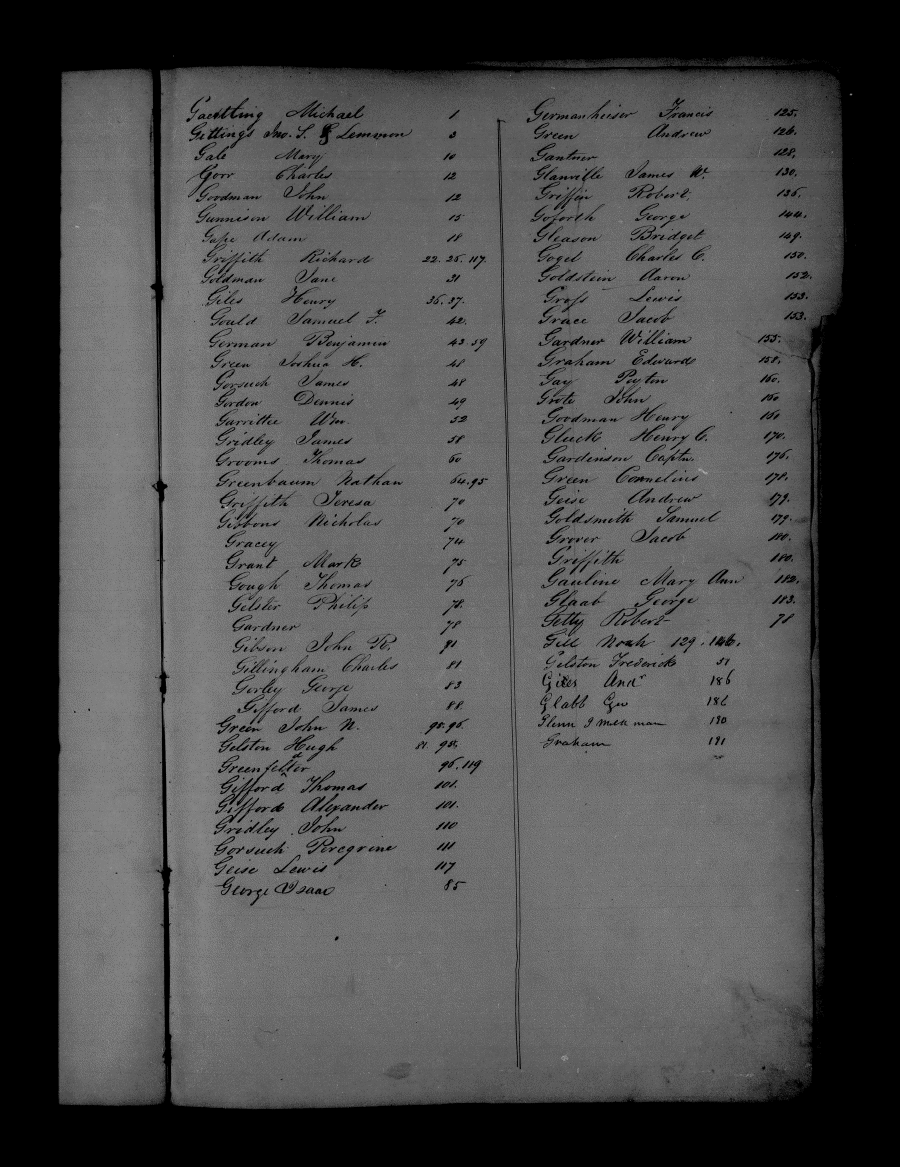 Gaehtting Michael 1
Gittings Jno. S. & Lemmon 3
Gale Mary 10
Gorr Charles 12
Goodman John 12
Gunnison William 15
Gape Adam 18
Griffith Richard 22. 25. 117.
Goldman Jane 31
Giles Henry 36. 37.
Gould Samuel F. 42.
German Benjamin 43. 59
Green Joshua H. 48
Gorsuch James 48
Gordon Dennis 49
Garrittee Wm. 52
Gridley James 58
Grooms Thomas 60
Greenbaum Nathan 64. 95
Griffith Teresa 70
Gibbons Nicholas 70
Gracey 74
Grant Mark 75
Gough Thomas 76
Gelster Philip 78.
Gardner 78
Gibson John R. 91
Gillingham Charles 81
Gorley George 83
Gifford James 88
Green John N. 95. 96.
Gelston Hugh 81. 95.
Greenfelter 96. 119
Gifford Thomas 101.
Gifford Alexander 101.
Gridley John 110
Gorsuch Peregrine 111
Geise Lewis 117
George Isaac 85
Germanheiser Francis 125.
Green Andrew 126.
Gantner 128.
Glanville James W. 130.
Griffin Robert. 136.
Goforth George 144.
Gleason Bridget 149.
Gogel Charles C. 150.
Goldstein Aaron 152.
Groſs Lewis 153.
Grace Jacob 153.
Gardner William 155.
Graham Edward 158.
Gay Peyton 160.
Grote John 160
Goodman Henry 160
Gluck Henry C. 170.
Gardinson Captn. 176.
Green Cornelius 178.
Geise Andrew 179.
Goldsmith Samuel 179.
Grover Jacob 180.
Griffith 180.
Gauline Mary Ann 182.
Glaab George 183.
Getty Robert 78
Gill Noah 129. 146.
Gelston Frederick 51
Giles And 186
Glabb Geo 186
Glenn 190
Graham 191